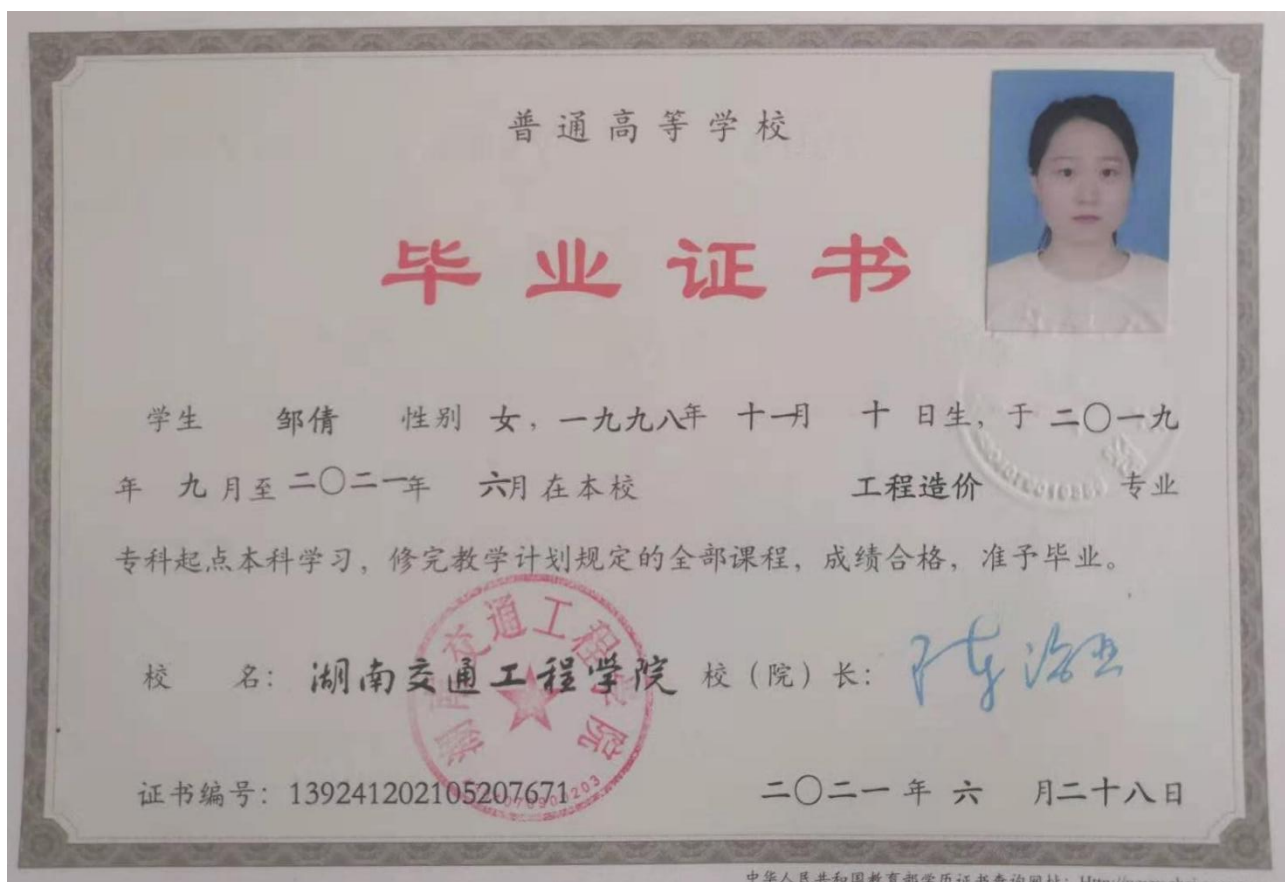 普通高等学校
毕业证书
学生 邹倩 性别 女，一九九八年 十一月 十 日生，于 二〇一九
年 九 月至 二〇二一年 六月 在本校 工程造价 专业
专科起点本科学习，修完教学计划规定的全部课程，成绩合格，准予毕业。
校 名：湖南交通工程学院 校（院）长：
湖南交通工程学院
证书编号：139241202105207671 二〇二一 年 六 月二十八日
中华人民共和国教育部学历证书查询网址：